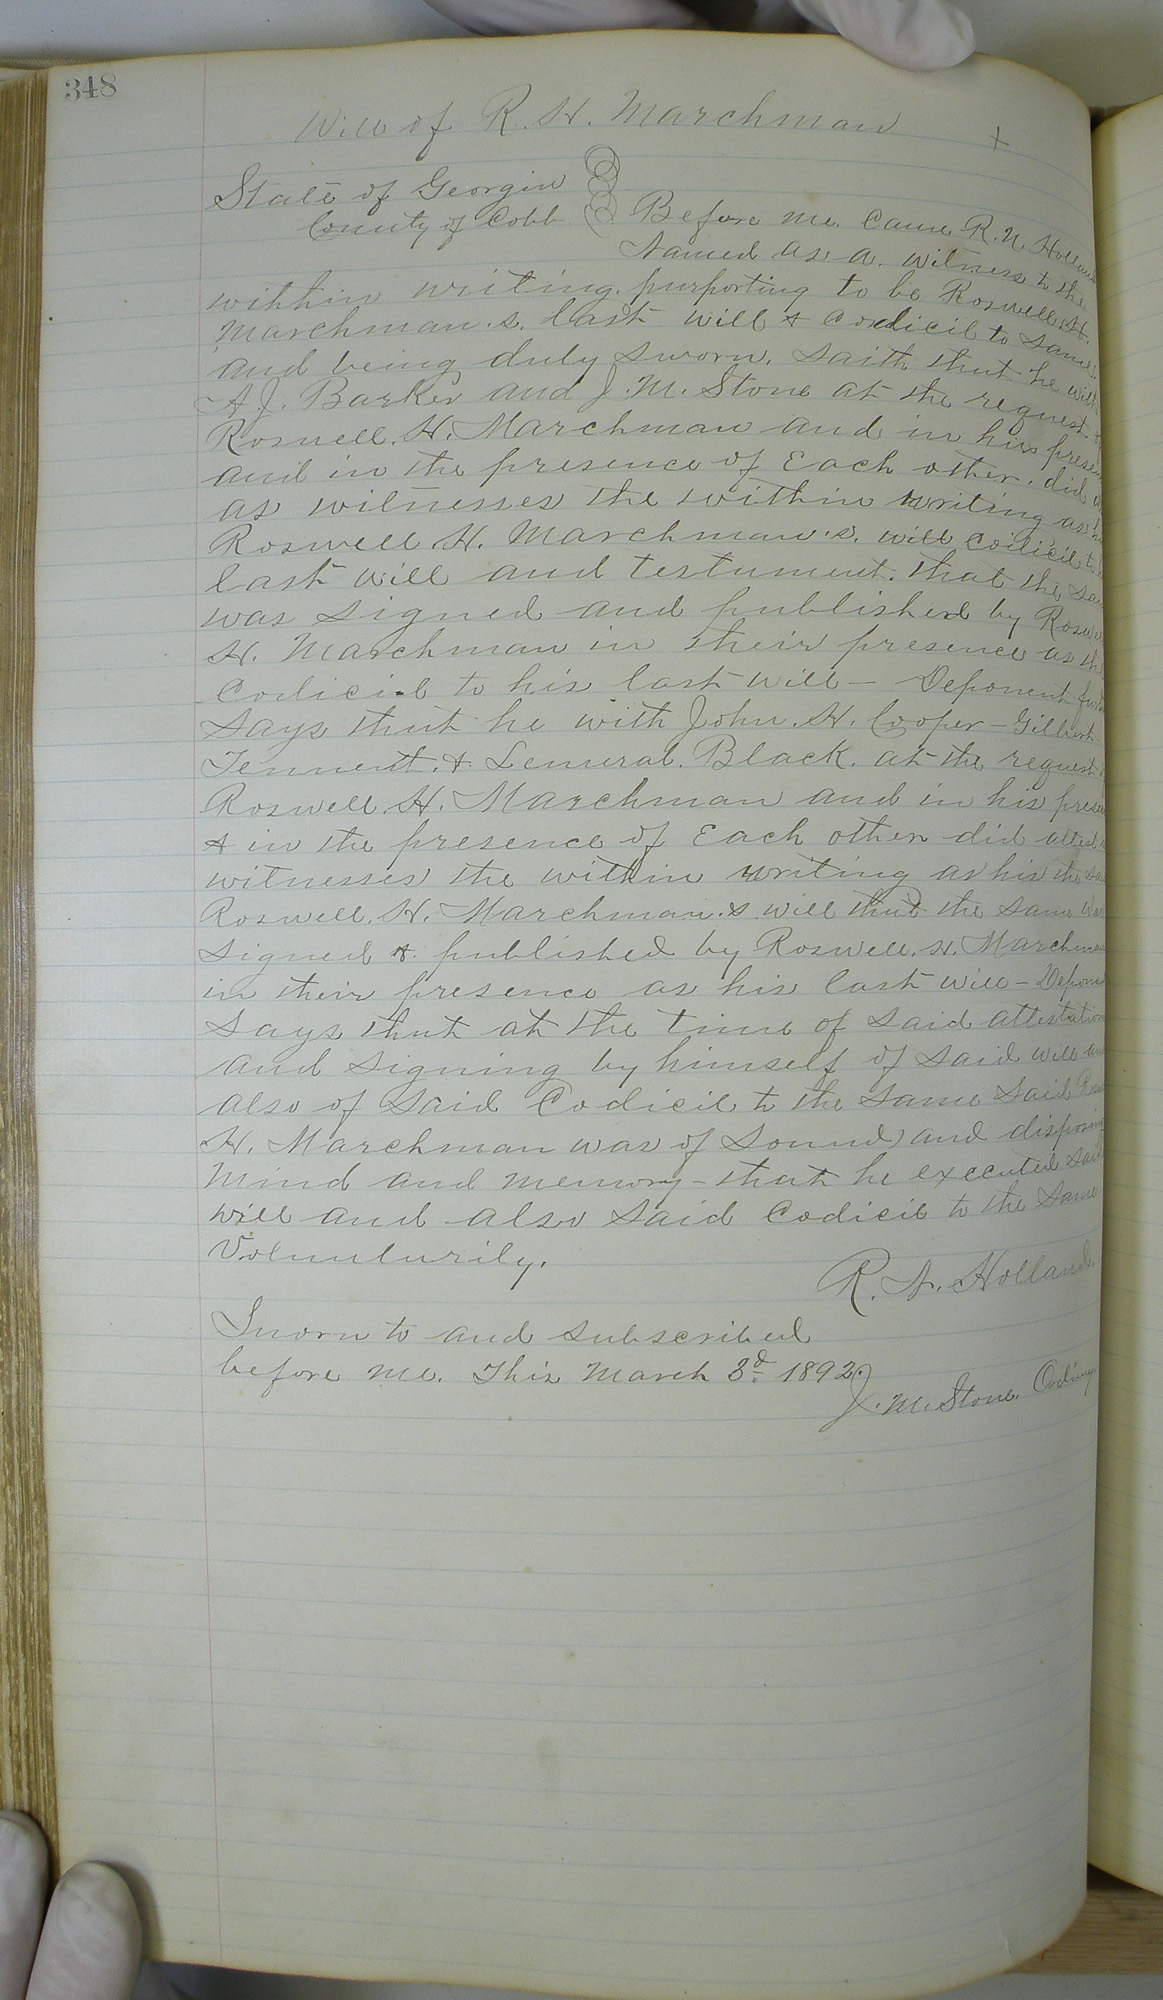 348
Will of R. H. Marchman
State of Georgia
County of Cobb Before me. Came R. N. Holland
Named as a. witness to the
within writing. purporting to be Roswell. H.
Marchman.s. last will & Codicil to same.
and being duly sworn. Saith that he with
A J. Barker and J. M. Stone at the request
Roswell. H. Marchman and in his
and in the presence of Each other. did
as witnesses the within writing as
Roswell H. Marchman.s. will codicil to
last will and testument. that the
was signed and published by
H. Marchman in their presence as
Codicial to his last will — Deponent
Says that he with John. H. Cooper — Gilbert
Tennent. & Lemural. Black. at the request
Roswell H. Marchman and in his
& in the presence of Each other did attest
witnesses the within writing as his the
Roswell. H. Marchman.s will that the same
Signed & published by Roswell. H. Marchman
in their presence as his last will —
Says that at the time of Said attestation
and Signing by himself of Said will
also of Said Codicil to the Same Said
H. Marchman was of Sound and disposing
Mind and memory — that he executed said
will and also Said Codicil to the Same
Volunturily.
R. N. Holland.
Sworn to and subscribed
before me. This March 3d 1892.
J. M. Stone. Ordinary